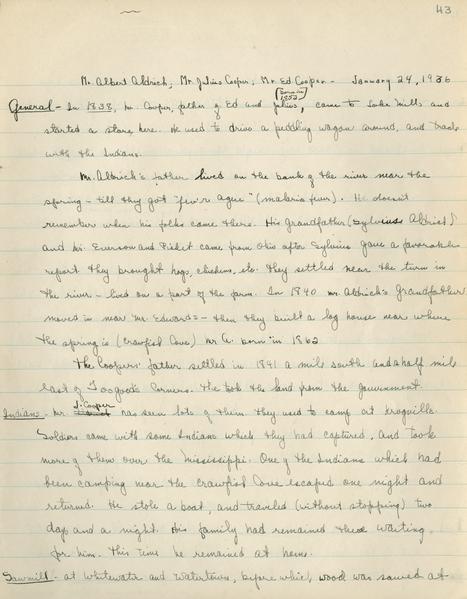 43
Mr. Albert Aldrich, Mr. Julius Cooper, Mr. Ed Cooper - January 24, 1936
General - In 1838, Mr. Cooper, father of Ed and Julius, (born in 1852) came to Lake Mills and
started a store here. He used to drive a peddling wagon around, and trade
with the Indians.
Mr. Aldrich's father lived on the bank of the river near the
spring - till they got "fev'r ague" (malaria fever). He doesn't
remember when his folks came there. His grandfather (Sylvinus Aldrich)
and Mr. Everson and came from Ohio after Sylvinus gave a favorable
report they brought hogs, chickens, etc. They settled near the turn in
the river - lived on a part of the farm. In 1840 Mr. Aldrich's Grandfather
moved in near Mr. Edwards - then they built a log house near where
the spring is (Crawfish Cove) Mr A. born in 1862
The Coopers' father settled in 1841 a mile south and a half mile
East of Toogood's Corners. The took the land from the government.
Indians - Mr. J. Cooper has seen lots of them they used to camp at Kroghville.
Soldiers came with some Indians which they had captured, and took
more of them over the Mississippi. One of the Indians which had
been camping near the Crawfish Cove escaped one night and
returned. He stole a boat, and traveled (without stopping) two
days and a night. His family had remained there waiting
for him. This time he remained at home.
Sawmill - at Whitewater and Watertown, before which, wood was sawed at